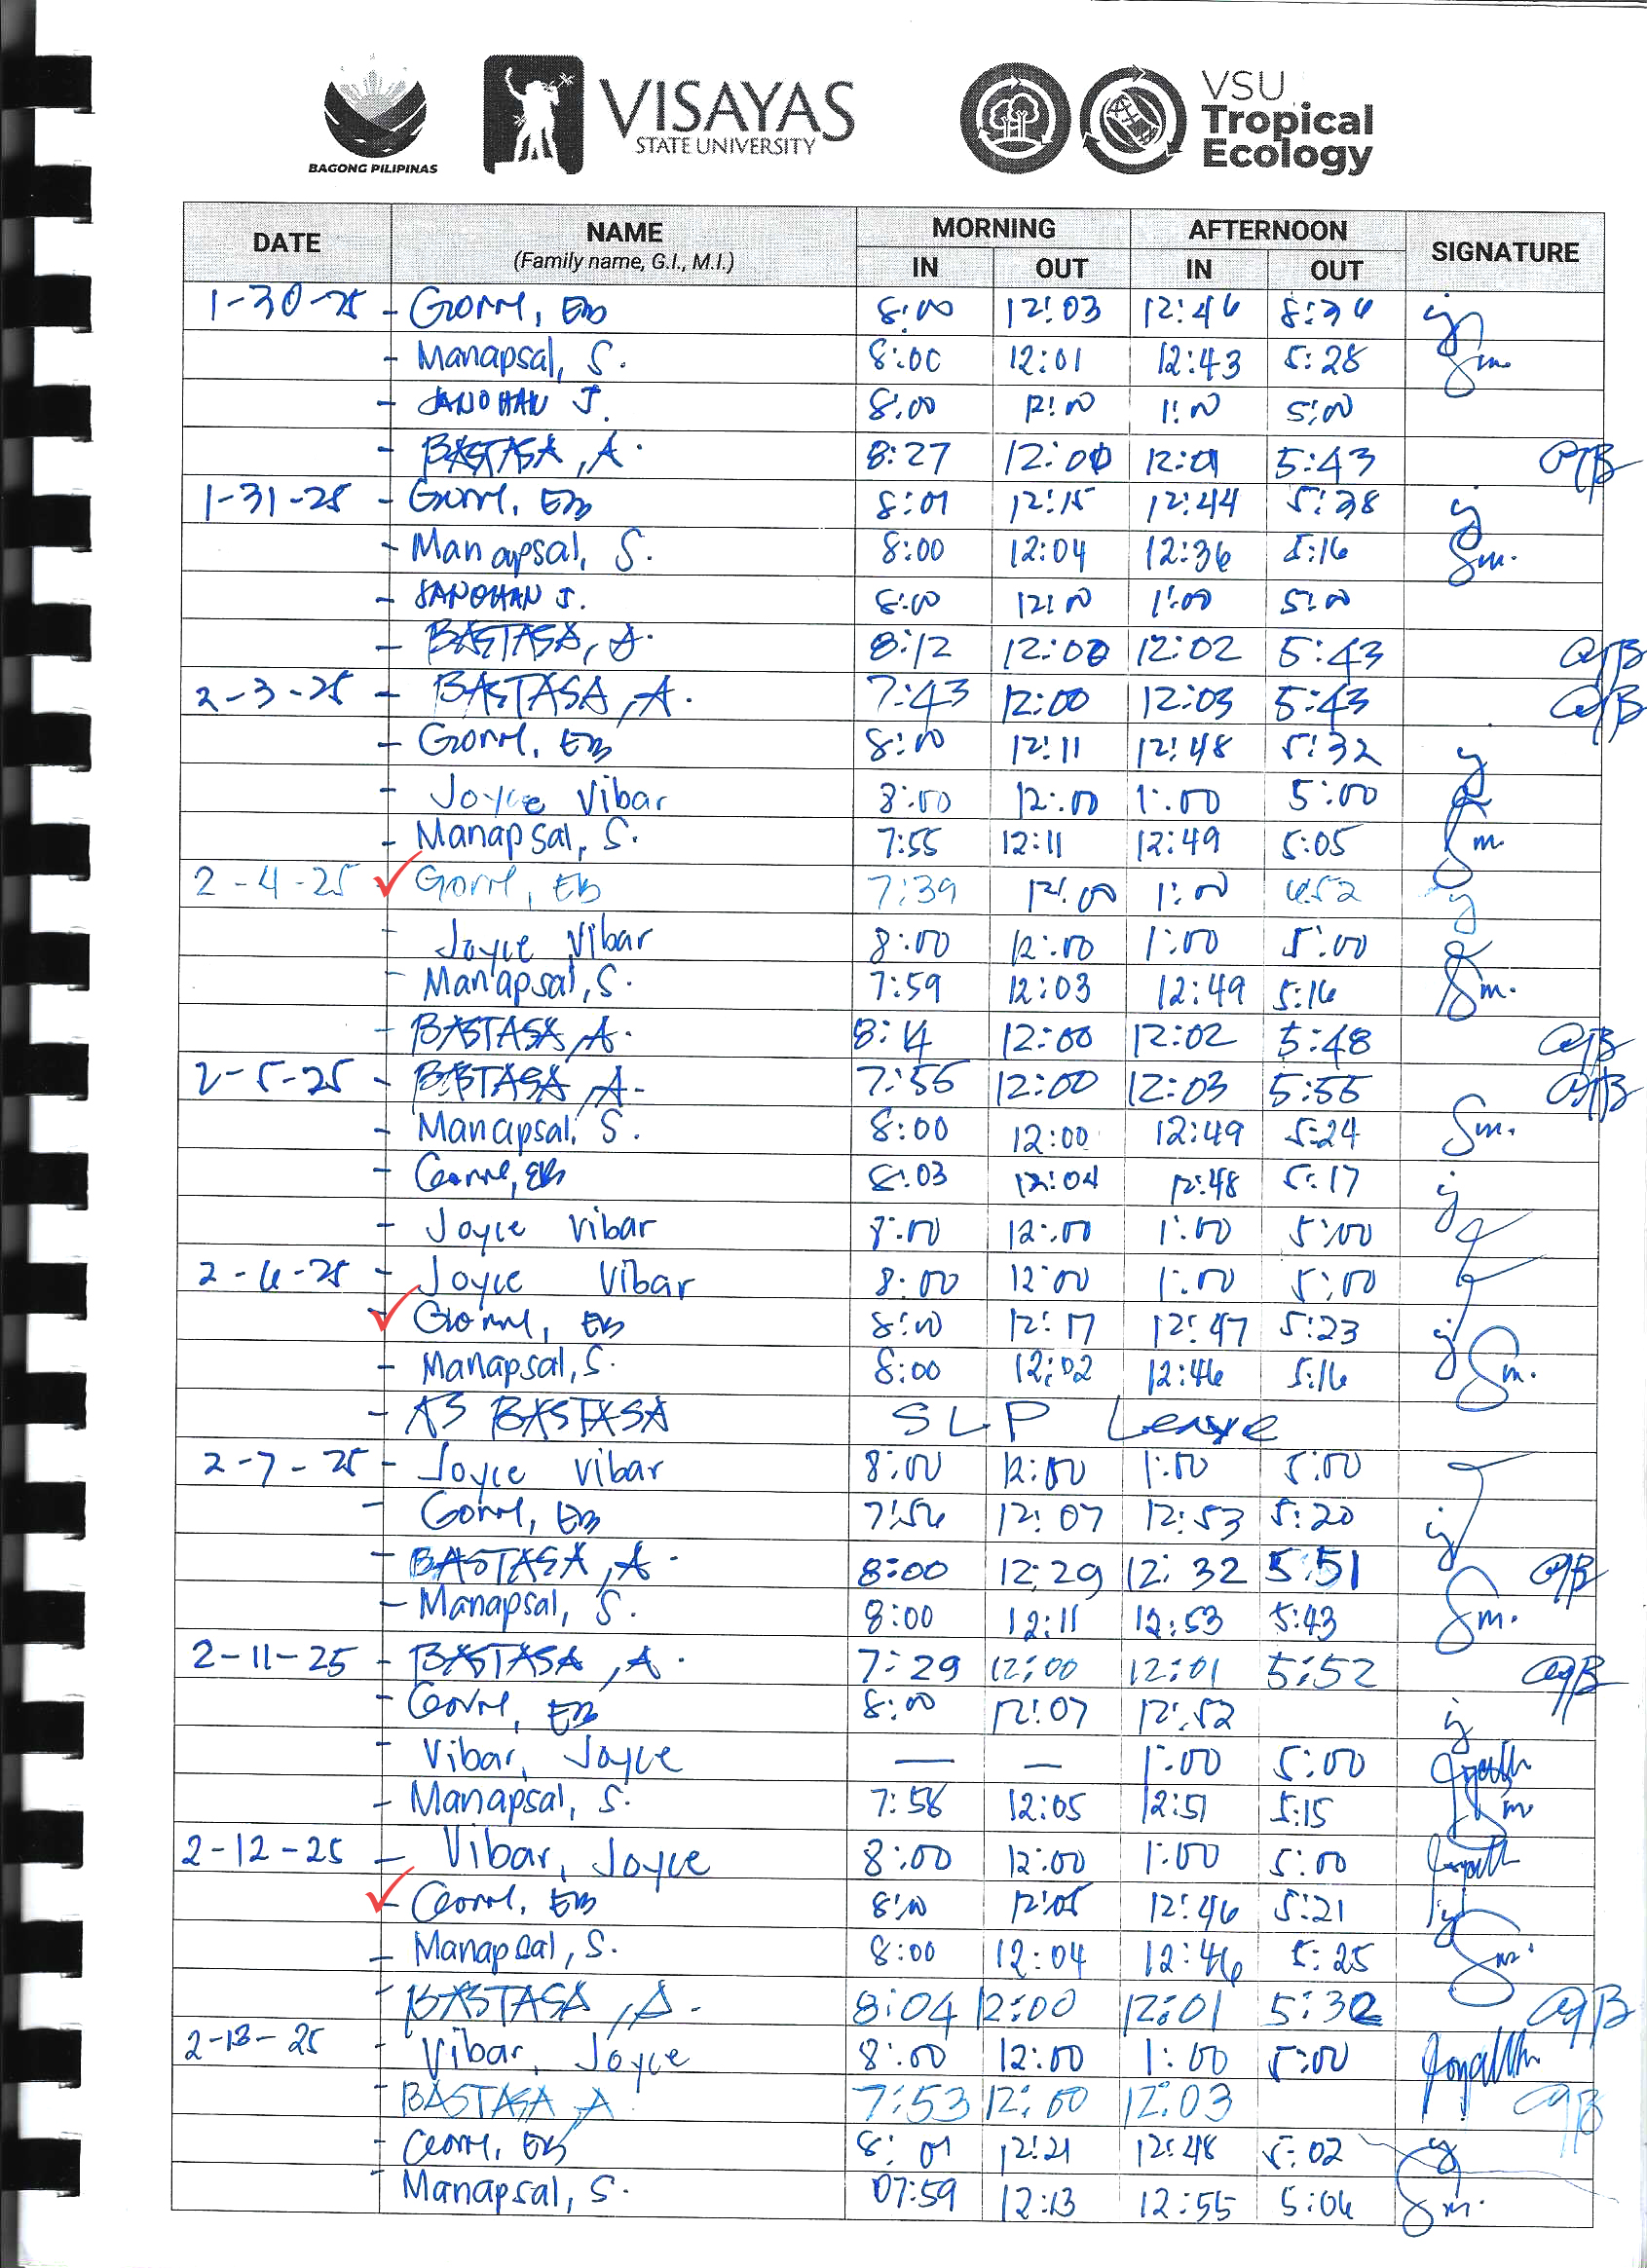 BAGONG PILIPINAS
VISAYAS
STATE UNIVERSITY
VSU
Tropical
Ecology
DATE NAME (Family name, G.I., M.I.) MORNING AFTERNOON SIGNATURE
IN OUT IN OUT
1-30-25 - 8:00 12:03 12:46
- Manapsal, S. 8:00 12:01 12:43 5:28 Sm.
- JANOHAN J. 8:00 12:00 1:00 5:00
- BASTASA, A. 8:27 12:00 12:01 5:43
1-31-25 - 8:01 12:15 12:44 5:38
- Manapsal, S. 8:00 12:04 12:36 5:16 Sm.
- JANOHAN J. 8:00 12:00 1:00 5:00
- BASTASA, A. 8:12 12:00 12:02 5:43
2-3-25 - BASTASA, A. 7:43 12:00 12:03 5:43
- 8:00 12:11 12:48 5:32
- Joyce Vibar 8:00 12:00 1:00 5:00
- Manapsal, S. 7:55 12:11 12:49 5:05 Sm.
2-4-25 7:39 12:00 1:00
- Joyce Vibar 8:00 12:00 1:00 5:00
- Manapsal, S. 7:59 12:03 12:49 5:16 Sm.
- BASTASA, A. 8:14 12:00 12:02 5:48
2-5-25 - BASTASA, A. 7:55 12:00 12:03 5:55
- Manapsal, S. 8:00 12:00 12:49 5:24 Sm.
- 8:03 12:04 12:48 5:17
- Joyce Vibar 8:00 12:00 1:00 5:00
2-6-25 - Joyce Vibar 8:00 12:00 1:00 5:00
8:00 12:17 12:47 5:23
- Manapsal, S. 8:00 12:02 12:46 5:16 Sm.
- AJ BASTASA SLP Leave
2-7-25 - Joyce Vibar 8:00 12:00 1:00 5:00
- 7:56 12:07 12:53 5:20
- BASTASA, A. 8:00 12:29 12:32 5:51
- Manapsal, S. 8:00 12:11 12:53 5:43 Sm.
2-11-25 - BASTASA, A. 7:29 12:00 12:01 5:52
- 8:00 12:07 12:52
- Vibar, Joyce — — 1:00 5:00
- Manapsal, S. 7:58 12:05 12:51 5:15 Sm
2-12-25 - Vibar, Joyce 8:00 12:00 1:00 5:00
8:00 12:05 12:46 5:21
- Manapsal, S. 8:00 12:04 12:46 5:25 Sm.
- BASTASA, A. 8:04 12:00 12:01 5:32
2-13-25 - Vibar, Joyce 8:00 12:00 1:00 5:00
- BASTASA, A 7:53 12:00 12:03
- 8:01 12:21 12:48 5:02
- Manapsal, S. 07:59 12:13 12:55 5:06 Sm.